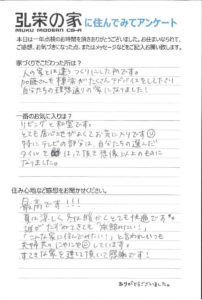 弘栄の家に住んでみてアンケート
MUKU MODERN CO-A
本日は一年点検のお時間を頂きありがとうございました。お住まいになられて、
ご感想、お気づきになった点、またはメッセージなどをご記入お願い致します。
家づくりでこだわった所は？
人の家とは違うつくりにした所です。
自分たちの理想通りの家になりました！
一番のお気に入りは？
リビングと和室です。
とても居心地がよくてお気に入りです
特にテレビの背景は、自分たちの選んだ
タイルで って頂き想像以上のものに
なりました。
住み心地など感想をお聞かせください。
最高です!!!
夏は涼しく冬は暖かくとても快適です
誰がたずねてきても「旅館みたい！」
「こんな家に住んでみたい！」と言われいつも
夫婦共々にやにや しています。
すてきな家を建てて頂いて感謝です！
ありがとうございました。